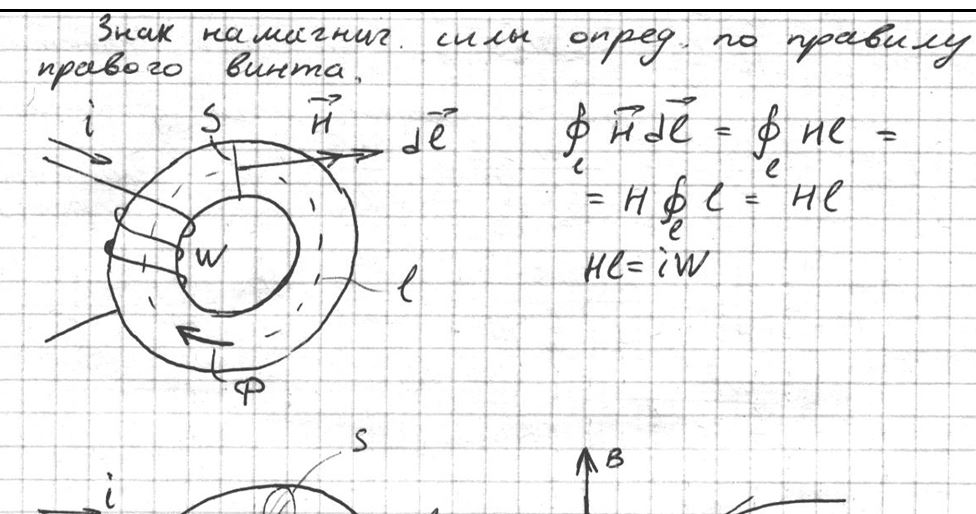 Знак намагнич. силы опред. по правилу
правого винта.
i
S
H⃗
dl⃗
W
l
Ф
∮ₗ H⃗ dl⃗ = ∮ₗ Hl =
= H ∮ₗ l = Hl
Hl = iW
S
i
B